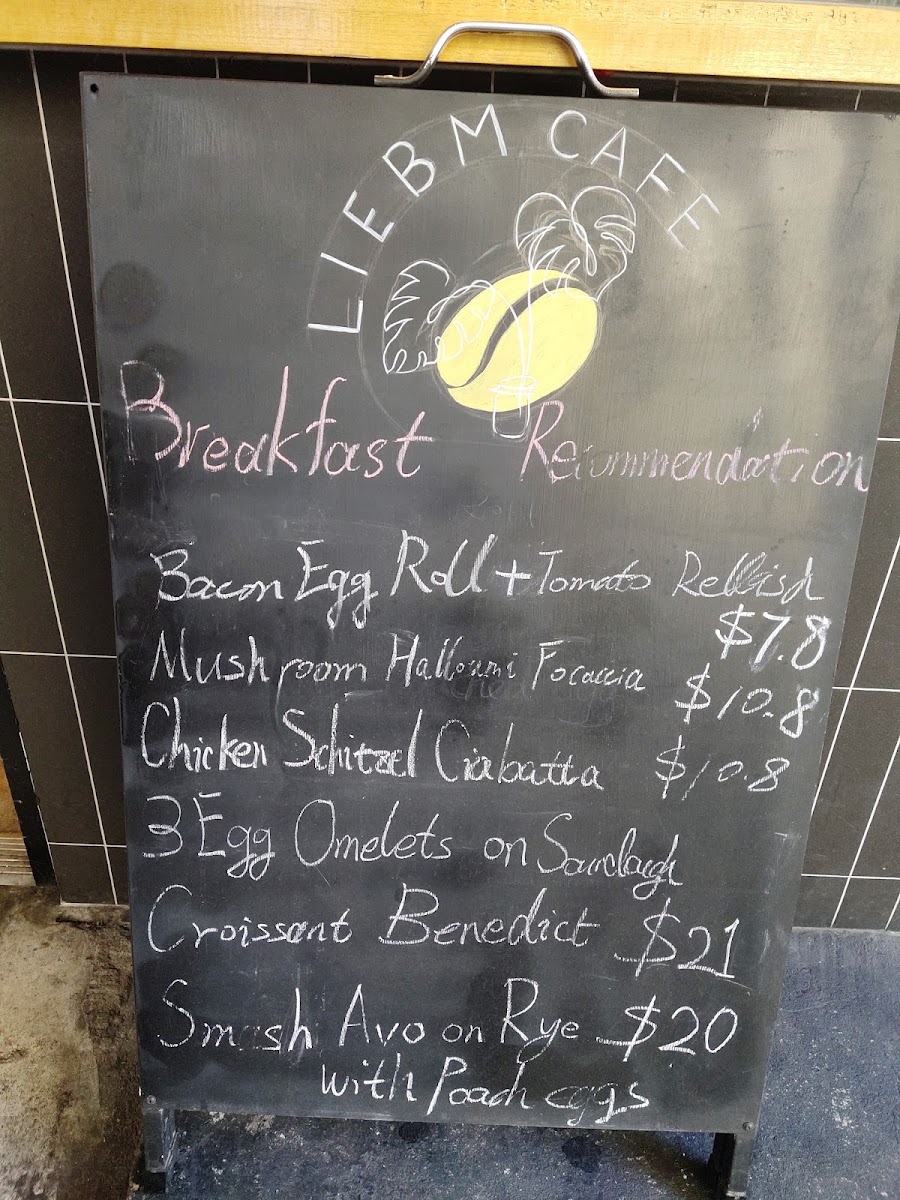 LIEBM CAFE
Breakfast Recommendation
Bacon Egg Roll + Tomato Rellish
$7.8
Mushroom Halloumi Focaccia $10.8
Chicken Schitzel Ciabatta $10.8
3 Egg Omelets on Sourdough
Croissant Benedict $21
Smash Avo on Rye $20
with Poach eggs